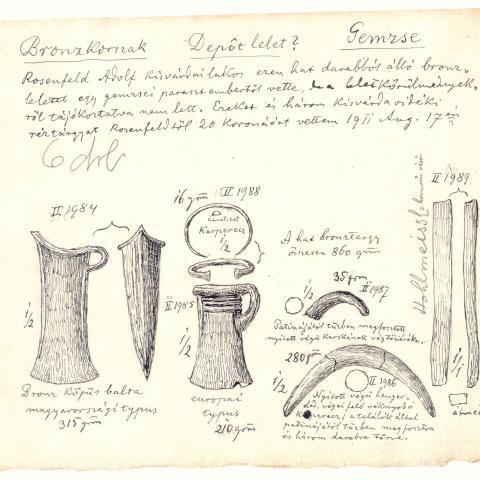 Bronzkorszak Depôt lelet? Gemzse
Rosenfeld Adolf kisvárdai lakos ezen hat darabból álló bronz-
leletet egy gemzsei parasztembertől vette, de a lelet körülmények-
ről tájékoztatva nem lett. Ezeket és három Kisvárda vidéki
réztárgyat Rosenfeldtől 20 koronáért vettem 1911 Aug. 17én
6 drb
II 1984
1/2
Bronz Köpüs balta
magyarországi typus
315 grm
16 grm II 1988
átmetszet
Karperecz
1/2
II 1985
1/2
európai
typus
210 grm
A hat bronztárgy
összesen 860 grm
35 grm
1/2 II 1987
Patinájától tűzben megfosztott
nyitott végű karikának végtöredéke.
280 grm
1/2
II 1986
Nyitott végű henger-
ded, végei felé vékonyodó
karperecz; a találók által
patinájától tűzben megfosztva
és három darabra törve.
Hohlmeissel
II 1989
1/1